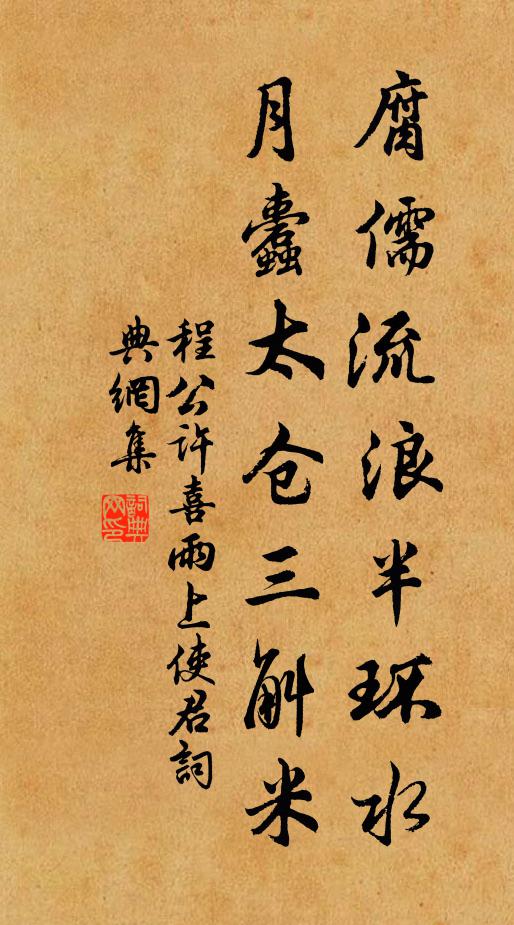 腐儒流浪半环水
月蠹太仓三斛米
程公许喜雨上使君词
典網集
詞典網印